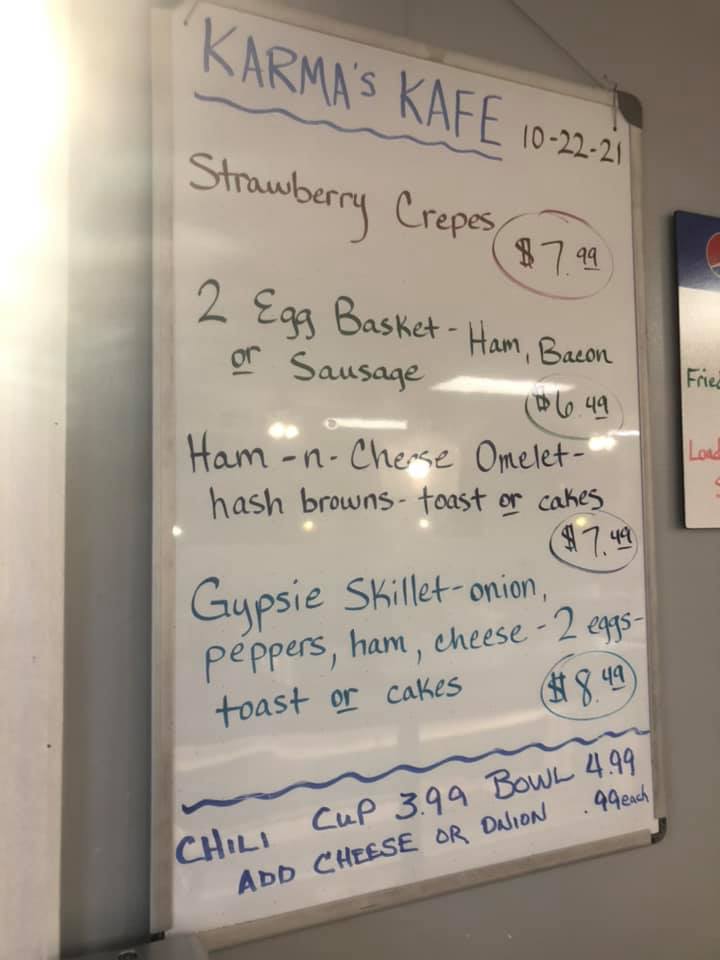 KARMA'S KAFE
10-22-21
Strawberry Crepes
$7.99
2 Egg Basket - Ham, Bacon
or Sausage
$6.49
Ham-n-Cheese Omelet-
hash browns - toast or cakes
$7.49
Gypsie Skillet - onion,
peppers, ham, cheese - 2 eggs-
toast or cakes
$8.49
CHILI CUP 3.99 BOWL 4.99
ADD CHEESE OR ONION .99 each